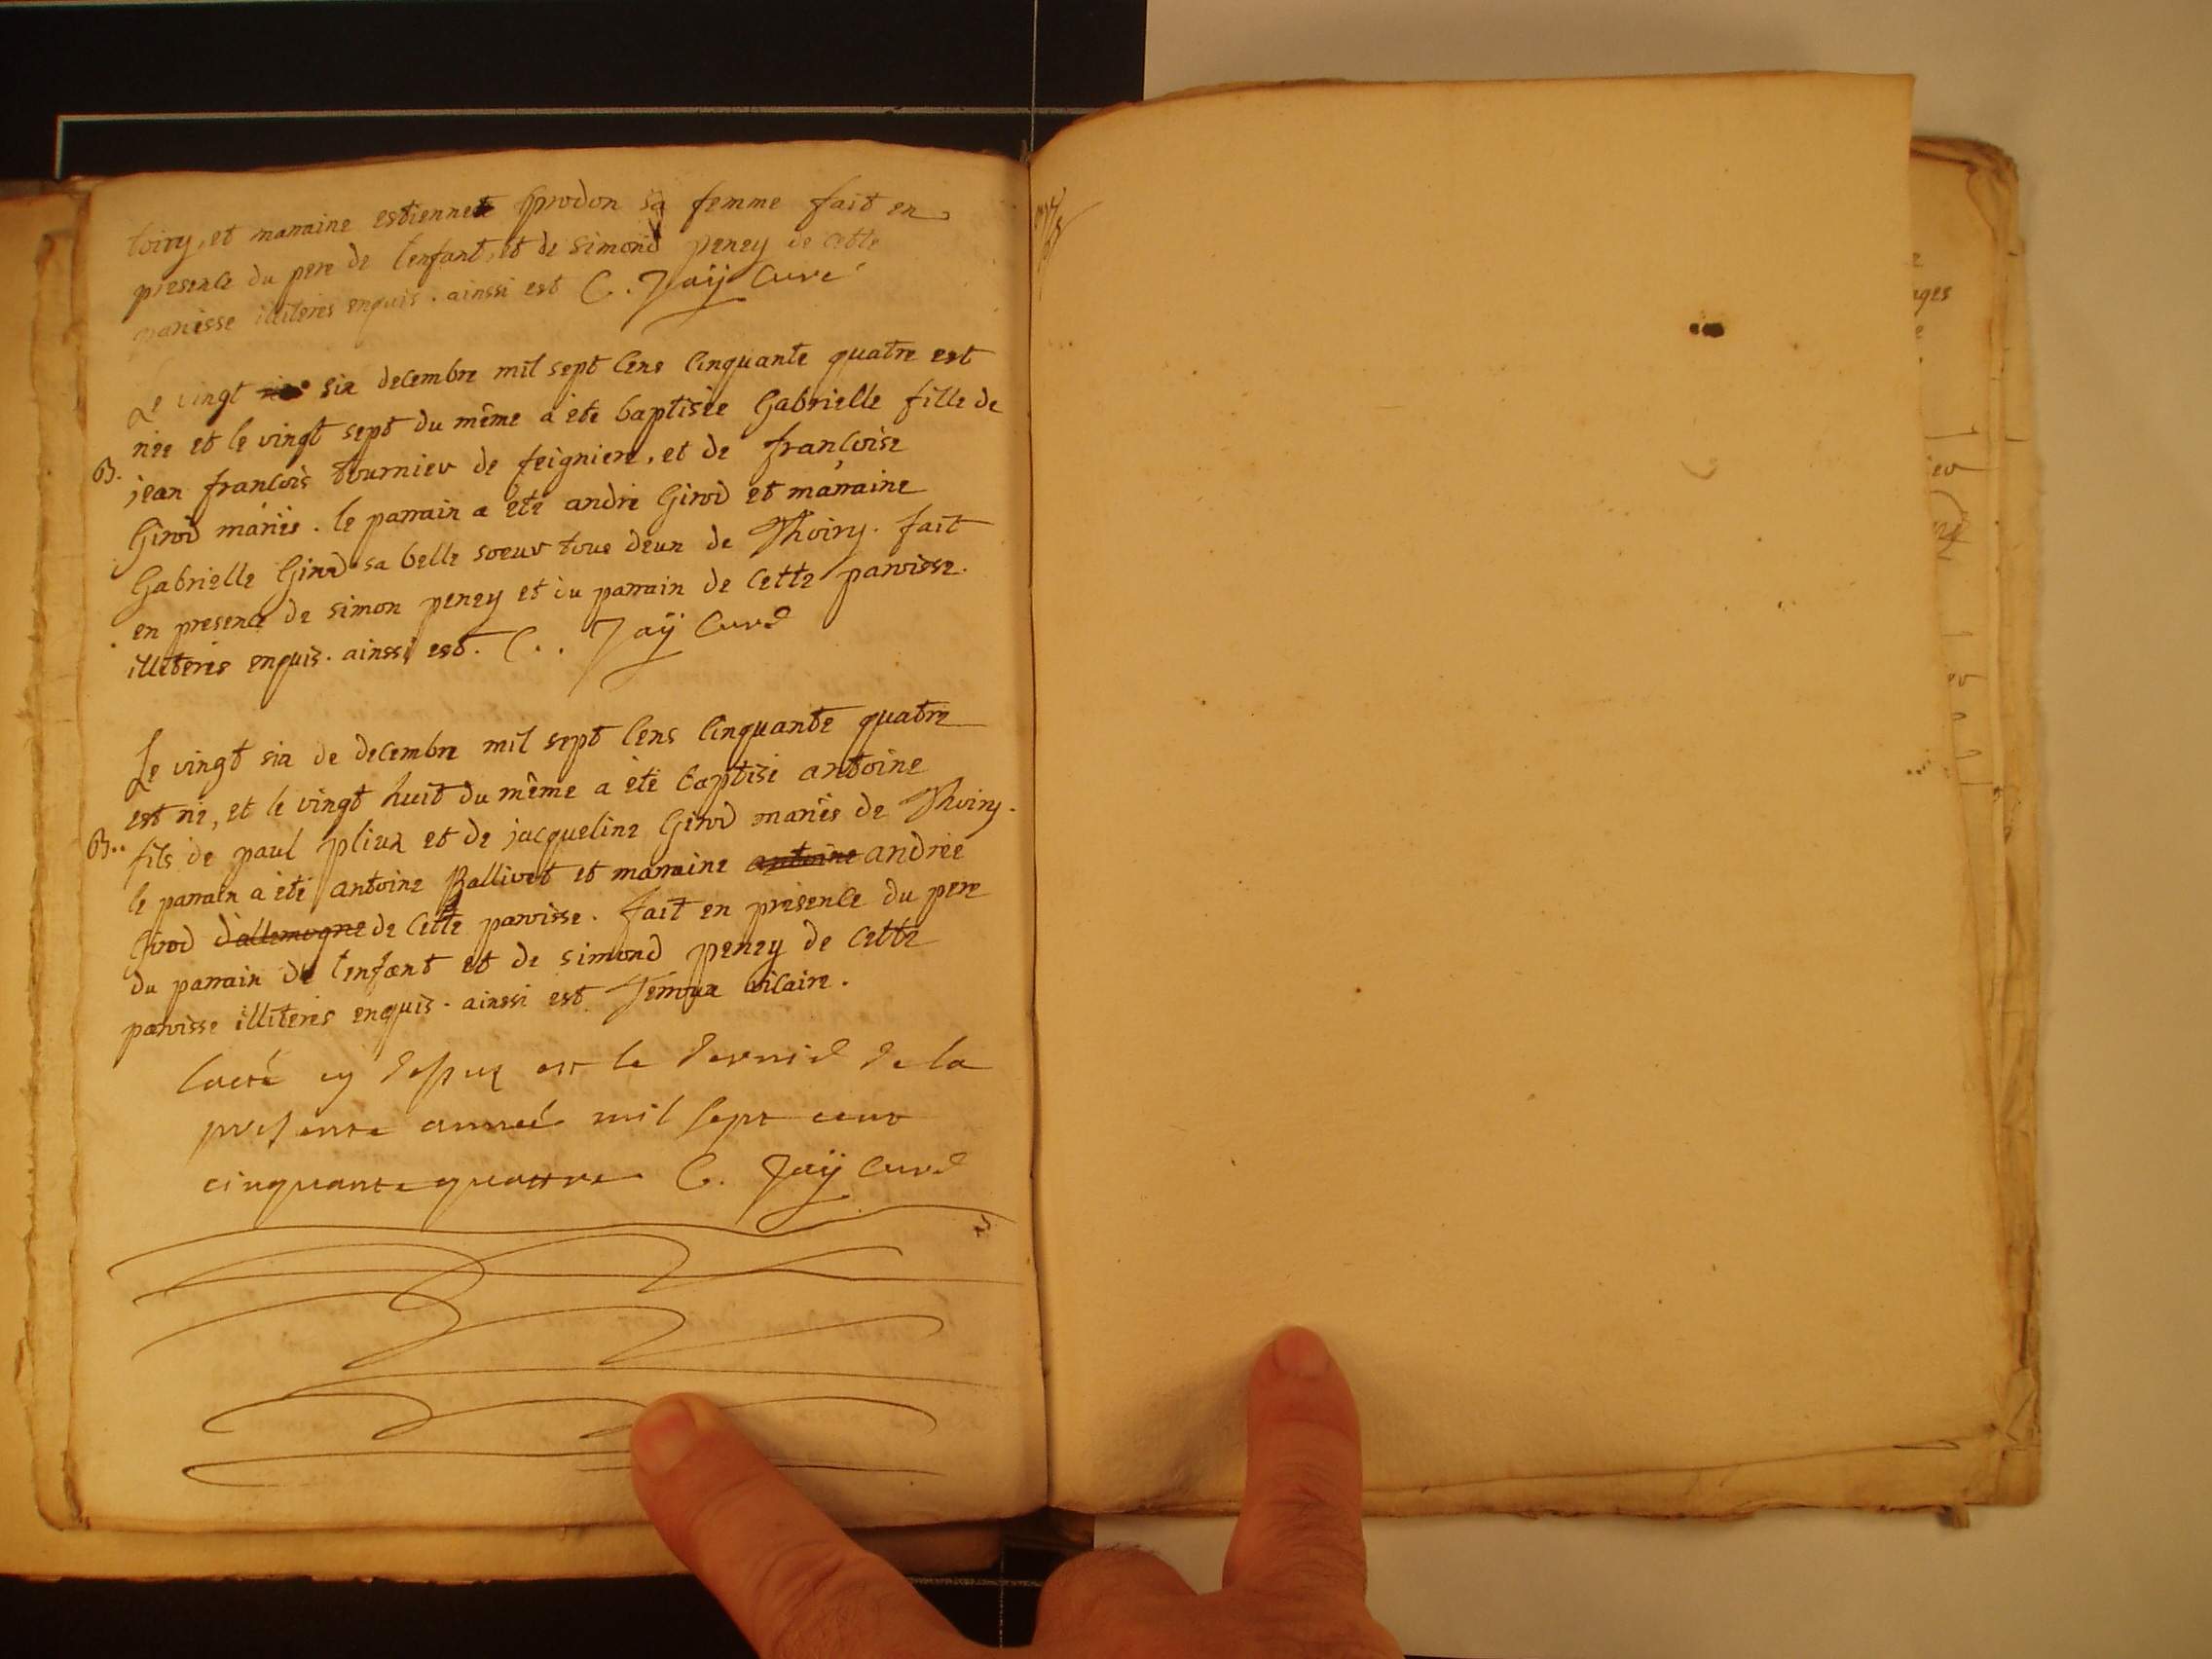 toiry, et marraine estiennete prodon sa femme fait en
presence du pere de l'enfant, et de simond peney de cette
paroisse illiteres enquis. ainssi est C. Jaÿ Curé
Le vingt six decembre mil sept cens cinquante quatre est
née et le vingt sept du même a été baptisée Gabrielle fille de
B. jean francois tournier de feigniere, et de francoise
Girod mariés. le parrain a été andré Girod et marraine
Gabrielle Girod sa belle soeur tous deux de Thoiry. fait
en presence de simon peney et du parrain de cette paroisse.
illiterés enquis. ainssi est. C.. Jaÿ Curé
Le vingt six de decembre mil sept cens cinquante quatre
est né, et le vingt huit du même a été baptisé antoine
B.. fils de paul plieux et de jacqueline Girod mariés de Thoiry.
le parrain a été antoine Ballivet et marraine antoine andrée
Girod d'allemogne de cette paroisse. fait en presence du pere
du parrain de l'enfant et de simond peney de cette
paroisse illiterés enquis. ainssi est vicaire.
lacte cy dessus est le dernie de la
presente année mil sept cent
cinquante quattre C. Jaÿ Curé
ages